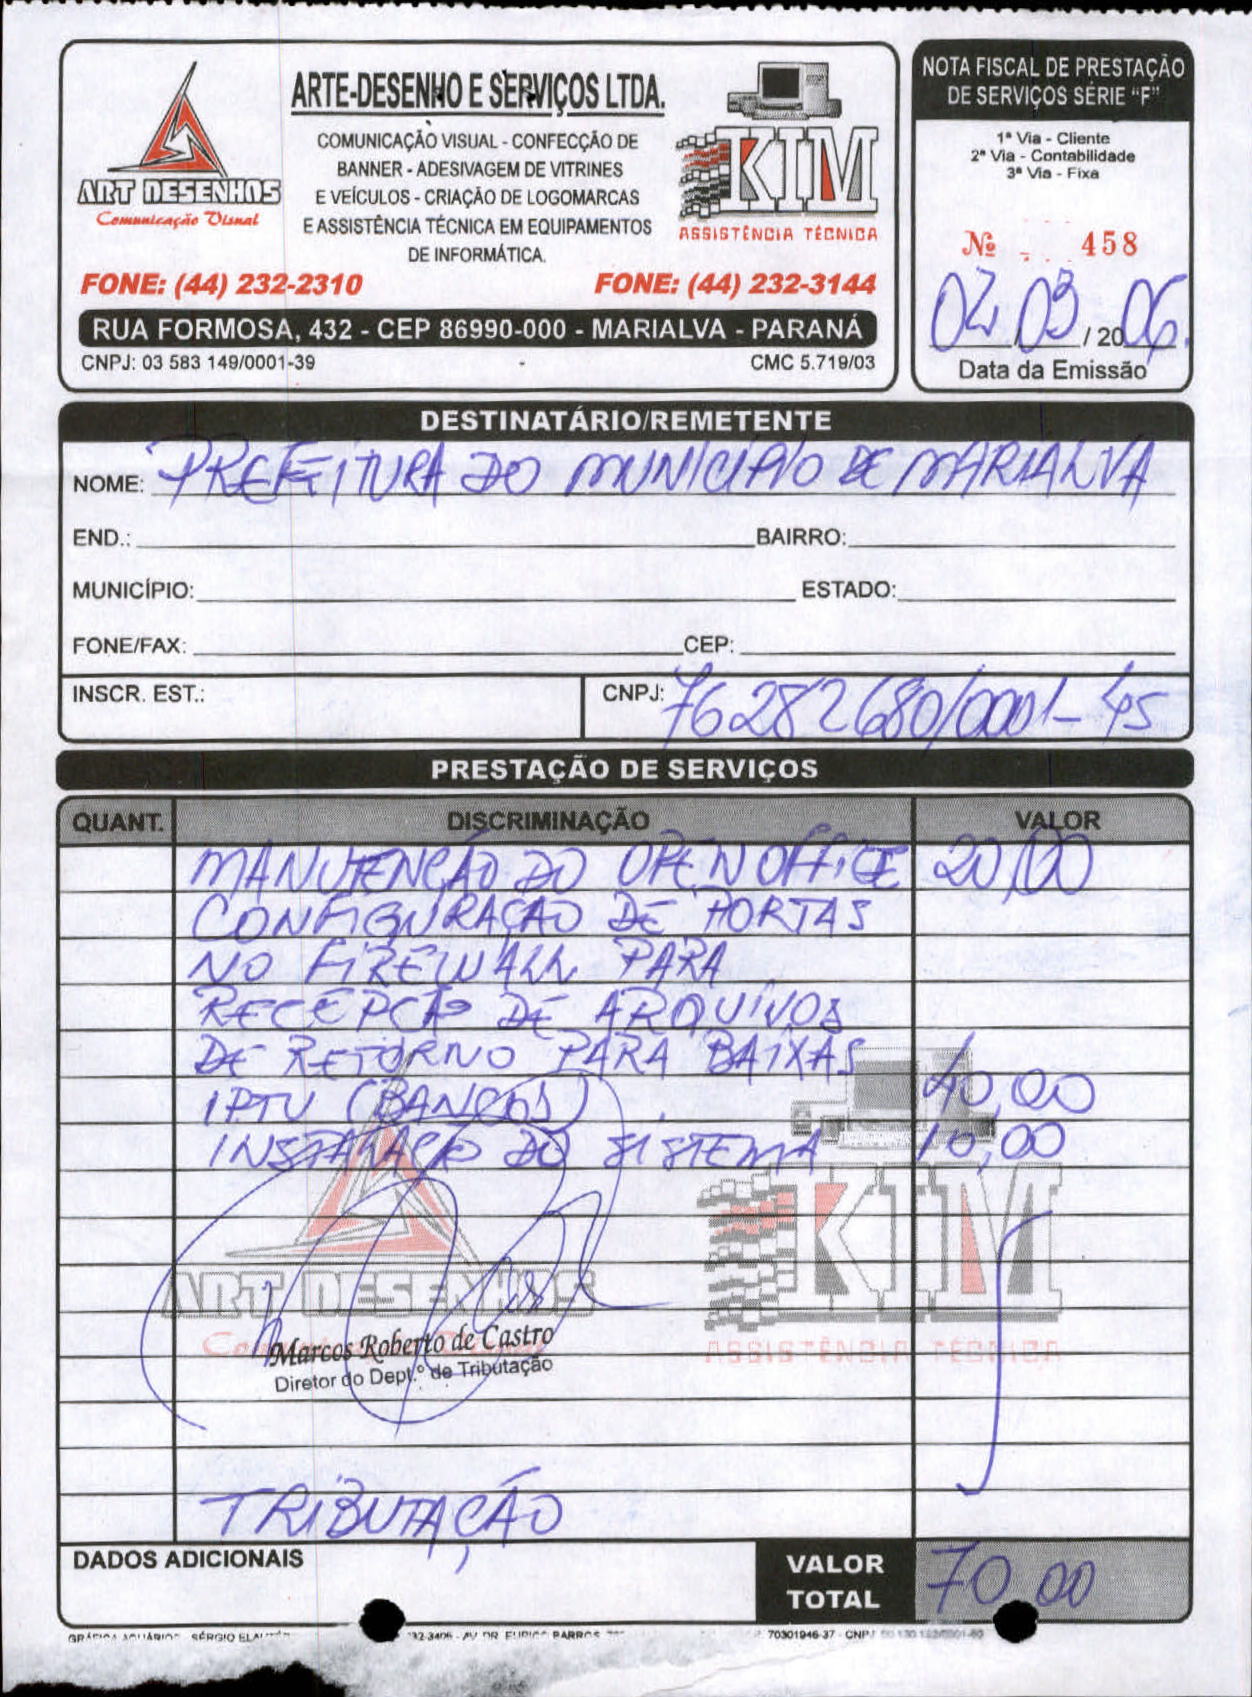 ARTE-DESENHO E SERVIÇOS LTDA.
COMUNICAÇÃO VISUAL - CONFECÇÃO DE
BANNER - ADESIVAGEM DE VITRINES
E VEÍCULOS - CRIAÇÃO DE LOGOMARCAS
E ASSISTÊNCIA TÉCNICA EM EQUIPAMENTOS
DE INFORMÁTICA.
ART DESENHOS
Comunicação Visual
KIM
ASSISTÊNCIA TÉCNICA
FONE: (44) 232-2310
FONE: (44) 232-3144
RUA FORMOSA, 432 - CEP 86990-000 - MARIALVA - PARANÁ
CNPJ: 03 583 149/0001-39
CMC 5.719/03
NOTA FISCAL DE PRESTAÇÃO
DE SERVIÇOS SÉRIE “F”
1ª Via - Cliente
2ª Via - Contabilidade
3ª Via - Fixa
Nº 458
02/03/2006
Data da Emissão
DESTINATÁRIO/REMETENTE
NOME: PREFEITURA DO MUNICIPIO DE MARIALVA
END.: BAIRRO:
MUNICÍPIO: ESTADO:
FONE/FAX: CEP:
INSCR. EST.: CNPJ: 76282680/0001-45
PRESTAÇÃO DE SERVIÇOS
QUANT. DISCRIMINAÇÃO VALOR
MANUTENÇÃO DO OPEN OFFICE 20,00
CONFIGURAÇÃO DE PORTAS
NO FIREWALL PARA
RECEPÇÃO DE ARQUIVOS
DE RETORNO PARA BAIXAS
IPTU (BANCOS) 40,00
INSTALAÇÃO DO SISTEMA 10,00
ART DESENHOS
KIM
ASSISTÊNCIA TÉCNICA
Marcos Roberto de Castro
Diretor do Dept.º de Tributação
TRIBUTAÇÃO
DADOS ADICIONAIS
VALOR TOTAL 70,00